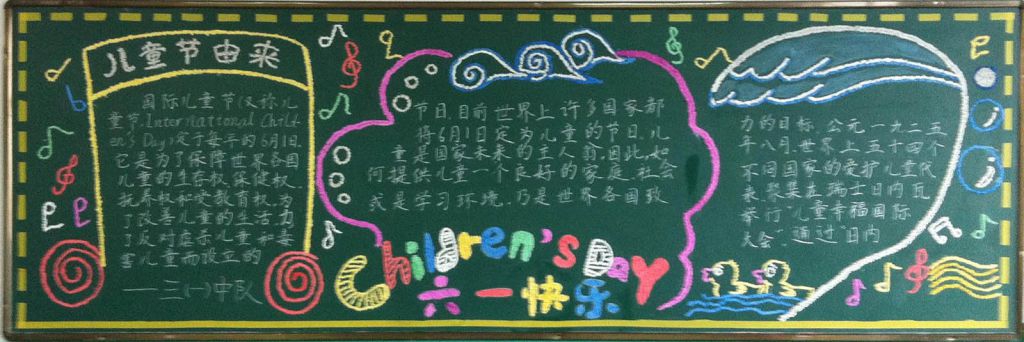 儿童节由来
国际儿童节(又称儿
童节,International Child-
en's Day)定于每年的6月1日.
它是为了保障世界各国
儿童的生存权.保健权.
抚养权和受教育权.为
了改善儿童的生活.为
了反对虐杀儿童和毒
害儿童而设立的
——三(一)中队
节日.目前世界上许多国家都
将6月1日定为儿童的节日.儿
童是国家未来的主人翁.因此,如
何提供儿童一个良好的家庭.社会
或是学习环境.乃是世界各国致
Children's Day
六一快乐
力的目标.公元一九二五
年八月.世界上五十四个
不同国家的爱护儿童代
表.聚集在瑞士日内瓦
举行"儿童幸福国际
大会".通过"日内